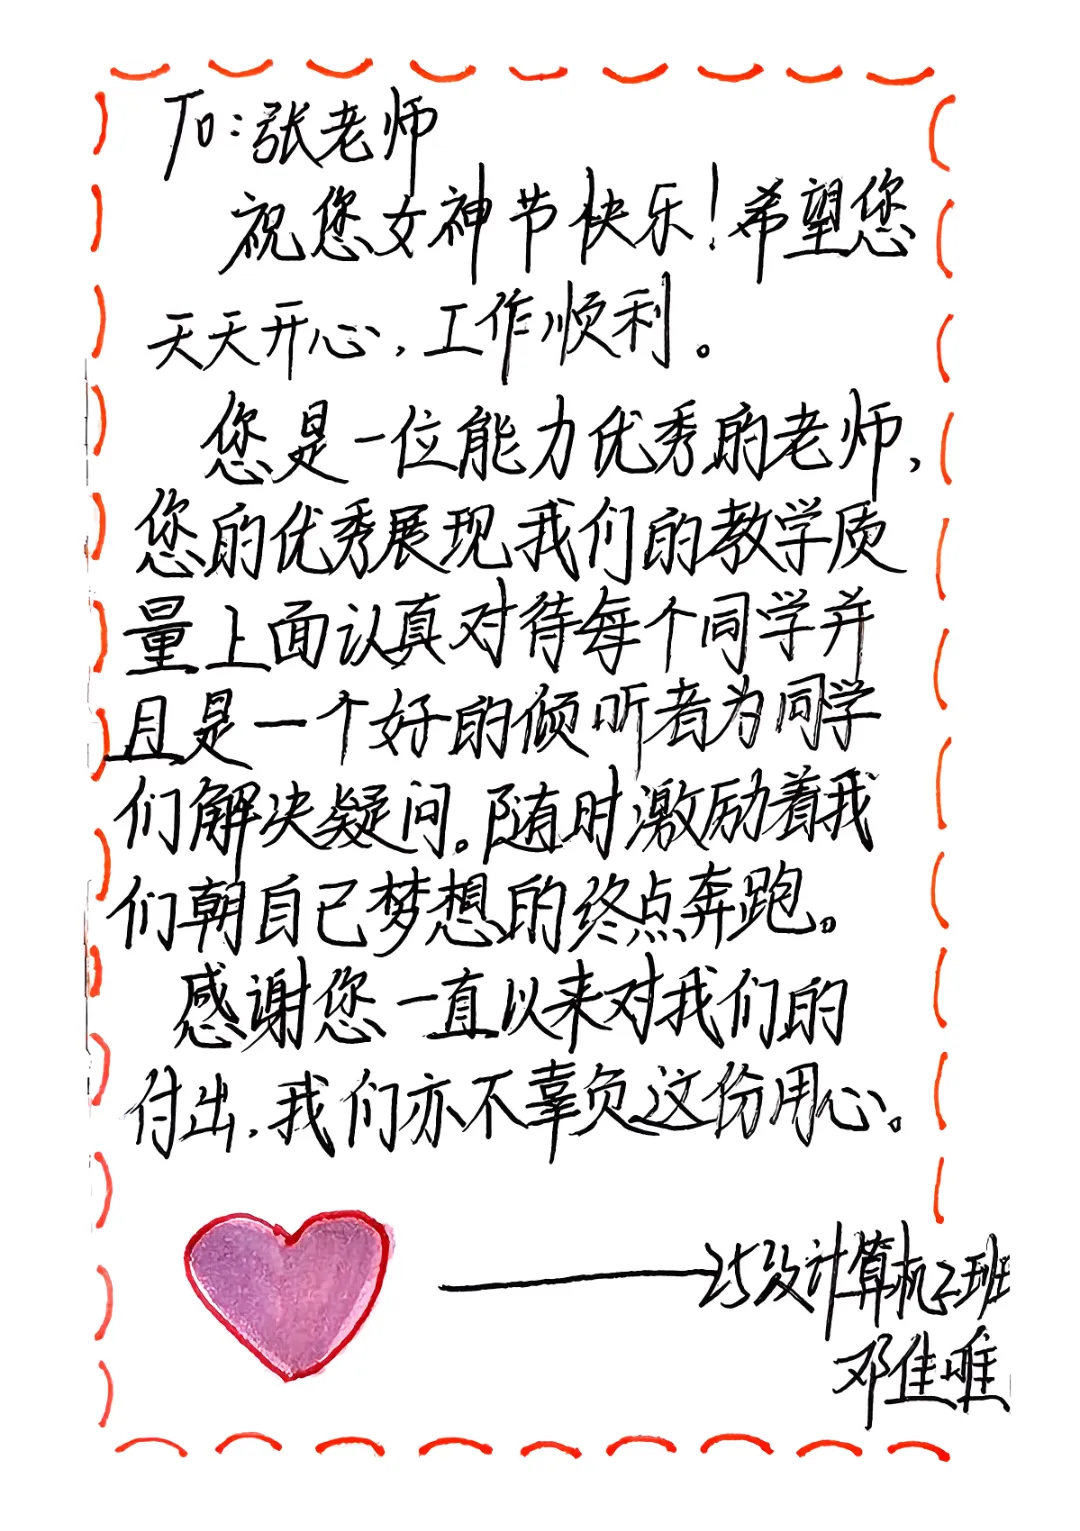 To:张老师
祝您女神节快乐!希望您
天天开心,工作顺利。
您是一位能力优秀的老师,
您的优秀展现我们的教学质
量上面认真对待每个同学并
且是一个好的倾听者为同学
们解决疑问。随时激励着我
们朝自己梦想的终点奔跑。
感谢您一直以来对我们的
付出,我们亦不辜负这份用心。
——25级计算机2班
邓佳唯